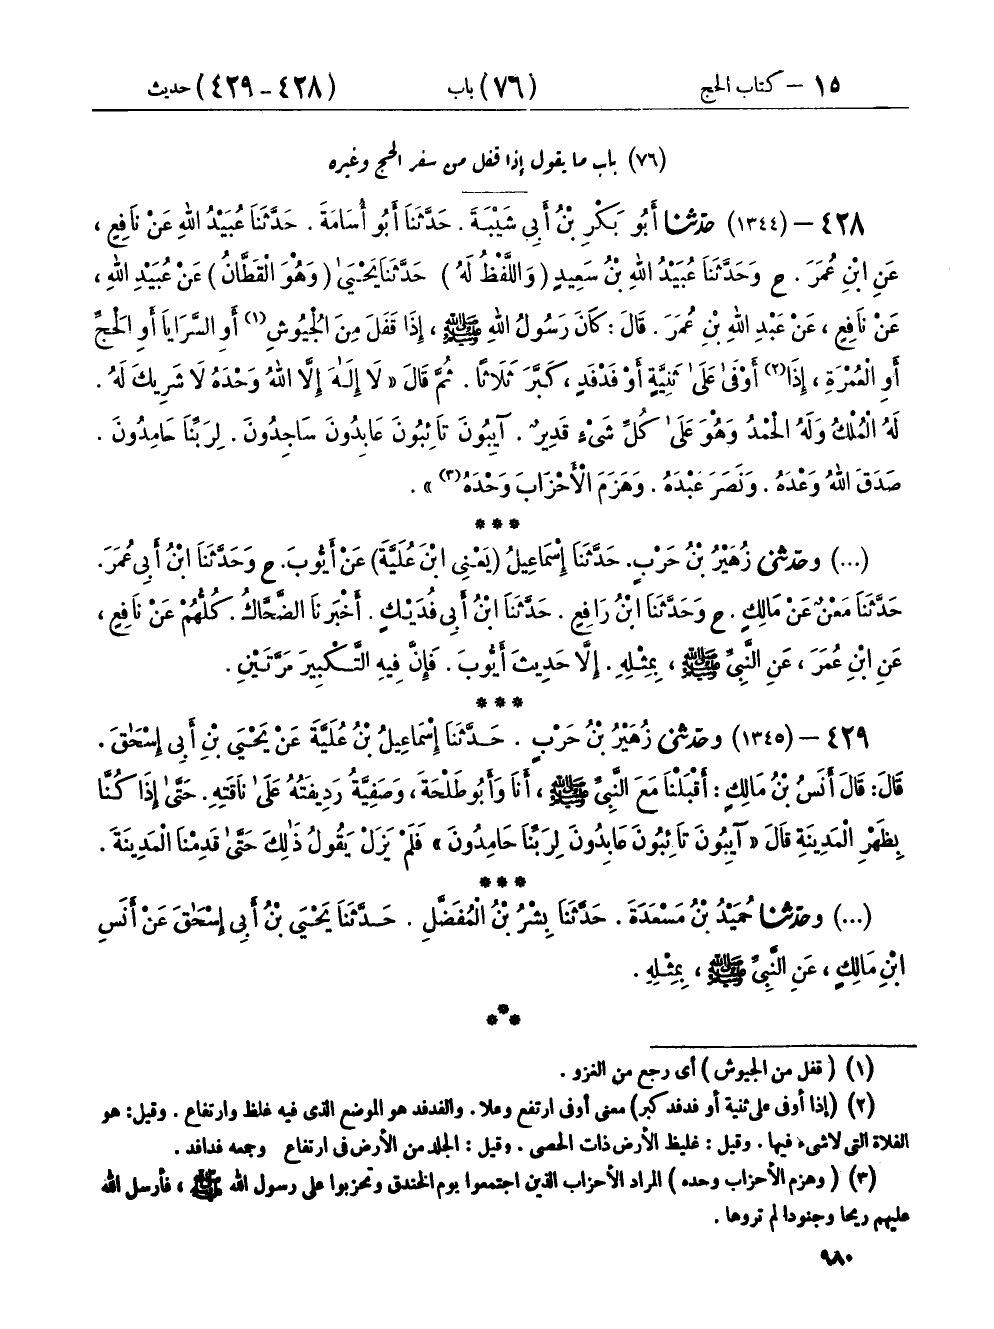 ١٥ – كتاب الحج (٧٦) باب (٤٢٨ - ٤٢٩) حديث
(٧٦) باب ما يقول إذا قفل من سفر الحج وغيره
٤٢٨ – (١٣٤٤) حدثنا أَبُو بَكْرِ بْنُ أَبِي شَيْبَةَ . حَدَّثَنَا أَبُو أُسَامَةَ . حَدَّثَنَا عُبَيْدُ اللهِ عَنْ نَافِعٍ ،
عَنِ ابْنِ عُمَرَ . ح وَحَدَّثَنَا عُبَيْدُ اللهِ بْنُ سَعِيدٍ ( وَاللَّفْظُ لَهُ ) حَدَّثَنَا يَحْيَىٰ ( وَهُوَ الْقَطَّانُ ) عَنْ عُبَيْدِ اللهِ ،
عَنْ نَافِعٍ ، عَنْ عَبْدِ اللهِ بْنِ عُمَرَ . قَالَ : كَانَ رَسُولُ اللهِ ﷺ ، إِذَا قَفَلَ مِنَ الْجُيُوشِ (١) أَوِ السَّرَايَا أَوِ الْحَجِّ
أَوِ الْعُمْرَةِ ، إِذَا (٢) أَوْفَىٰ عَلَىٰ ثَنِيَّةٍ أَوْ فَدْفَدٍ ، كَبَّرَ ثَلَاثًا . ثُمَّ قَالَ « لَا إِلَـٰهَ إِلَّا اللهُ وَحْدَهُ لَا شَرِيكَ لَهُ .
لَهُ الْمُلْكُ وَلَهُ الْحَمْدُ وَهُوَ عَلَىٰ كُلِّ شَيْءٍ قَدِيرٌ . آيِبُونَ تَائِبُونَ عَابِدُونَ سَاجِدُونَ . لِرَبِّنَا حَامِدُونَ .
صَدَقَ اللهُ وَعْدَهُ . وَنَصَرَ عَبْدَهُ . وَهَزَمَ الْأَحْزَابَ وَحْدَهُ (٣) » .
***
(...) وحدثني زُهَيْرُ بْنُ حَرْبٍ . حَدَّثَنَا إِسْمَاعِيلُ (يَعْنِي ابْنَ عُلَيَّةَ) عَنْ أَيُّوبَ. ح وَحَدَّثَنَا ابْنُ أَبِي عُمَرَ .
حَدَّثَنَا مَعْنٌ عَنْ مَالِكٍ . ح وَحَدَّثَنَا ابْنُ رَافِعٍ . حَدَّثَنَا ابْنُ أَبِي فُدَيْكٍ . أَخْبَرَنَا الضَّحَّاكُ . كُلُّهُمْ عَنْ نَافِعٍ ،
عَنِ ابْنِ عُمَرَ ، عَنِ النَّبِيِّ ﷺ ، بِمِثْلِهِ . إِلَّا حَدِيثَ أَيُّوبَ . فَإِنَّ فِيهِ التَّكْبِيرَ مَرَّتَيْنِ .
***
٤٢٩ – (١٣٤٥) وحدثني زُهَيْرُ بْنُ حَرْبٍ . حَدَّثَنَا إِسْمَاعِيلُ بْنُ عُلَيَّةَ عَنْ يَحْيَىٰ بْنِ أَبِي إِسْحَٰقَ .
قَالَ : قَالَ أَنَسُ بْنُ مَالِكٍ : أَقْبَلْنَا مَعَ النَّبِيِّ ﷺ ، أَنَا وَأَبُو طَلْحَةَ ، وَصَفِيَّةُ رَدِيفَتُهُ عَلَىٰ نَاقَتِهِ . حَتَّىٰ إِذَا كُنَّا
بِظَهْرِ الْمَدِينَةِ قَالَ « آيِبُونَ تَائِبُونَ عَابِدُونَ لِرَبِّنَا حَامِدُونَ » فَلَمْ يَزَلْ يَقُولُ ذَٰلِكَ حَتَّىٰ قَدِمْنَا الْمَدِينَةَ .
***
(...) وحدثنا حُمَيْدُ بْنُ مَسْعَدَةَ . حَدَّثَنَا بِشْرُ بْنُ الْمُفَضَّلِ . حَدَّثَنَا يَحْيَىٰ بْنُ أَبِي إِسْحَٰقَ عَنْ أَنَسِ
ابْنِ مَالِكٍ ، عَنِ النَّبِيِّ ﷺ ، بِمِثْلِهِ .
***
(١) ( قفل من الجيوش ) أى رجع من الغزو .
(٢) (إذا أوفى على ثنية أو فدفد كبر) معنى أوفى ارتفع وعلا . والفدفد هو الموضع الذى فيه غلظ وارتفاع . وقيل : هو
الفلاة التى لا شىء فيها . وقيل : غليظ الأرض ذات الحصى . وقيل : الجلد من الأرض فى ارتفاع وجمعه فدافد .
(٣) ( وهزم الأحزاب وحده ) المراد الأحزاب الذين اجتمعوا يوم الخندق وتحزبوا على رسول الله ﷺ ، فأرسل الله
عليهم ريحا وجنودا لم تروها .
٩٨٠